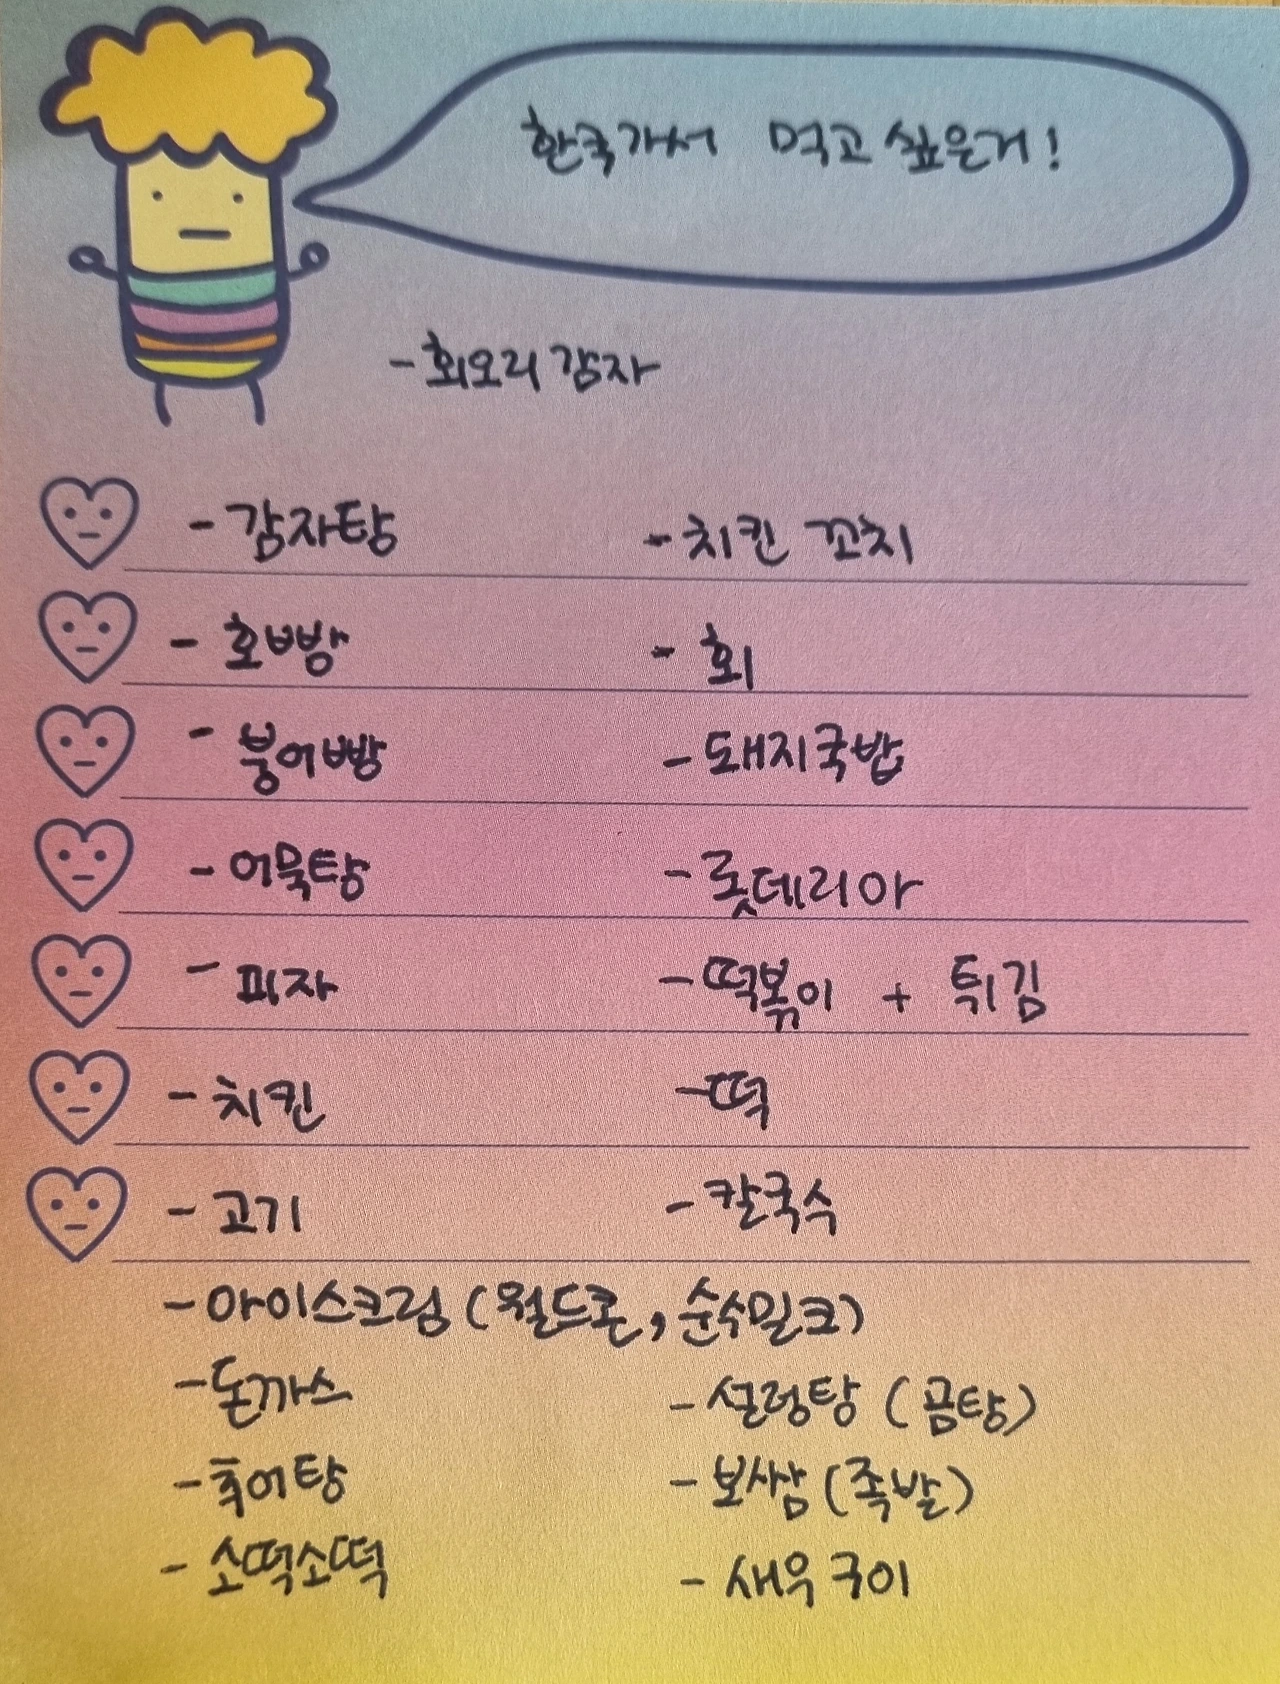 한국가서 먹고 싶은거!
- 회오리 감자
- 감자탕 - 치킨 꼬치
- 호빵 - 회
- 붕어빵 - 돼지국밥
- 어묵탕 - 롯데리아
- 피자 - 떡볶이 + 튀김
- 치킨 - 떡
- 고기 - 칼국수
- 아이스크림 (월드콘, 순수밀크)
- 돈까스 - 설렁탕 (곰탕)
- 추어탕 - 보쌈 (족발)
- 소떡소떡 - 새우 구이